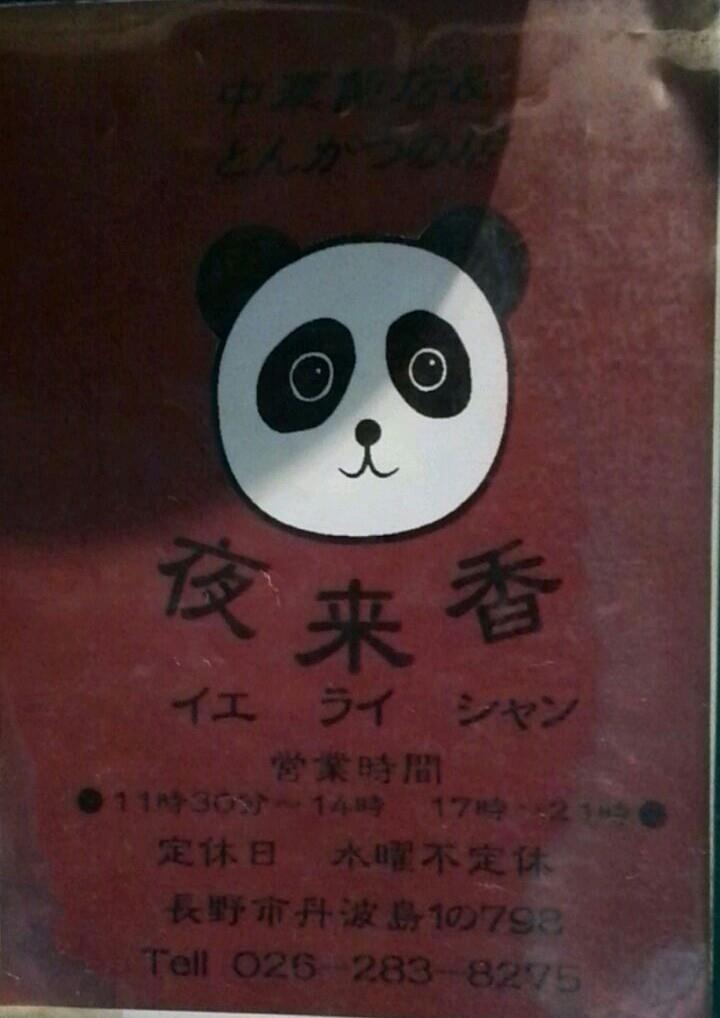 中華飯店&
とんかつの店
夜来香
イエ ライ シャン
営業時間
●11時30分～14時 17時～21時●
定休日 水曜不定休
長野市丹波島1の798
Tell 026-283-8275